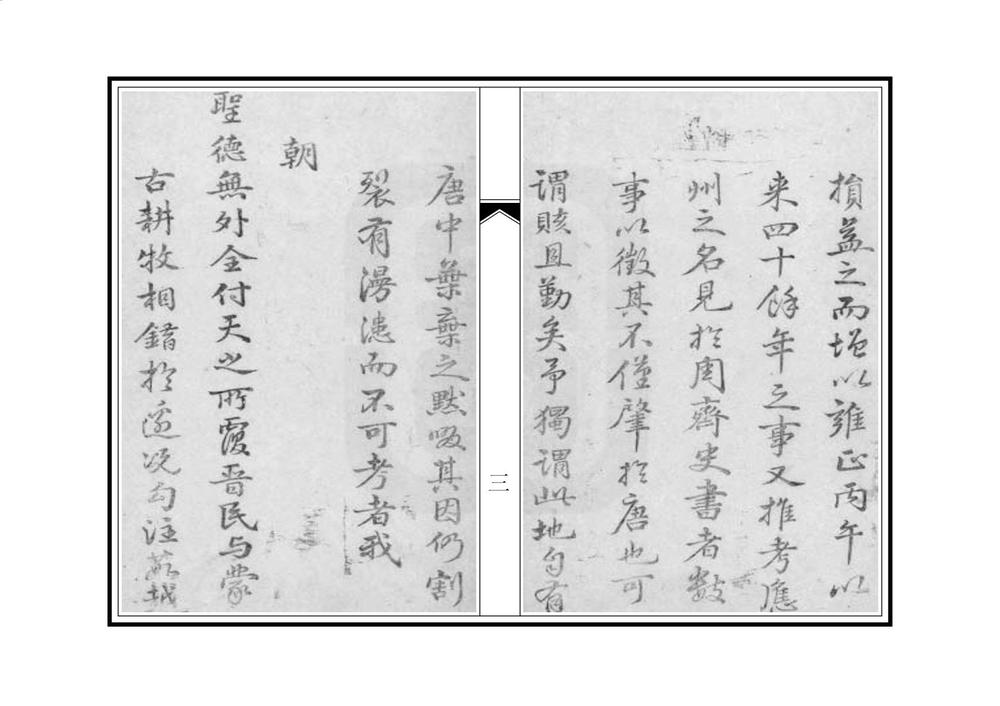 損益之而增以雍正丙午以
来四十餘年之事又推考應
州之名見於周齊史書者数
事以徵其不僅肇於唐也可
謂賅且勤矣予獨謂此地自有
三
唐中葉棄之默啜其因仍割
裂有漫漶而不可考者我
朝
聖德無外全付天之所覆晉民与蒙
古耕牧相錯於遼况勾注